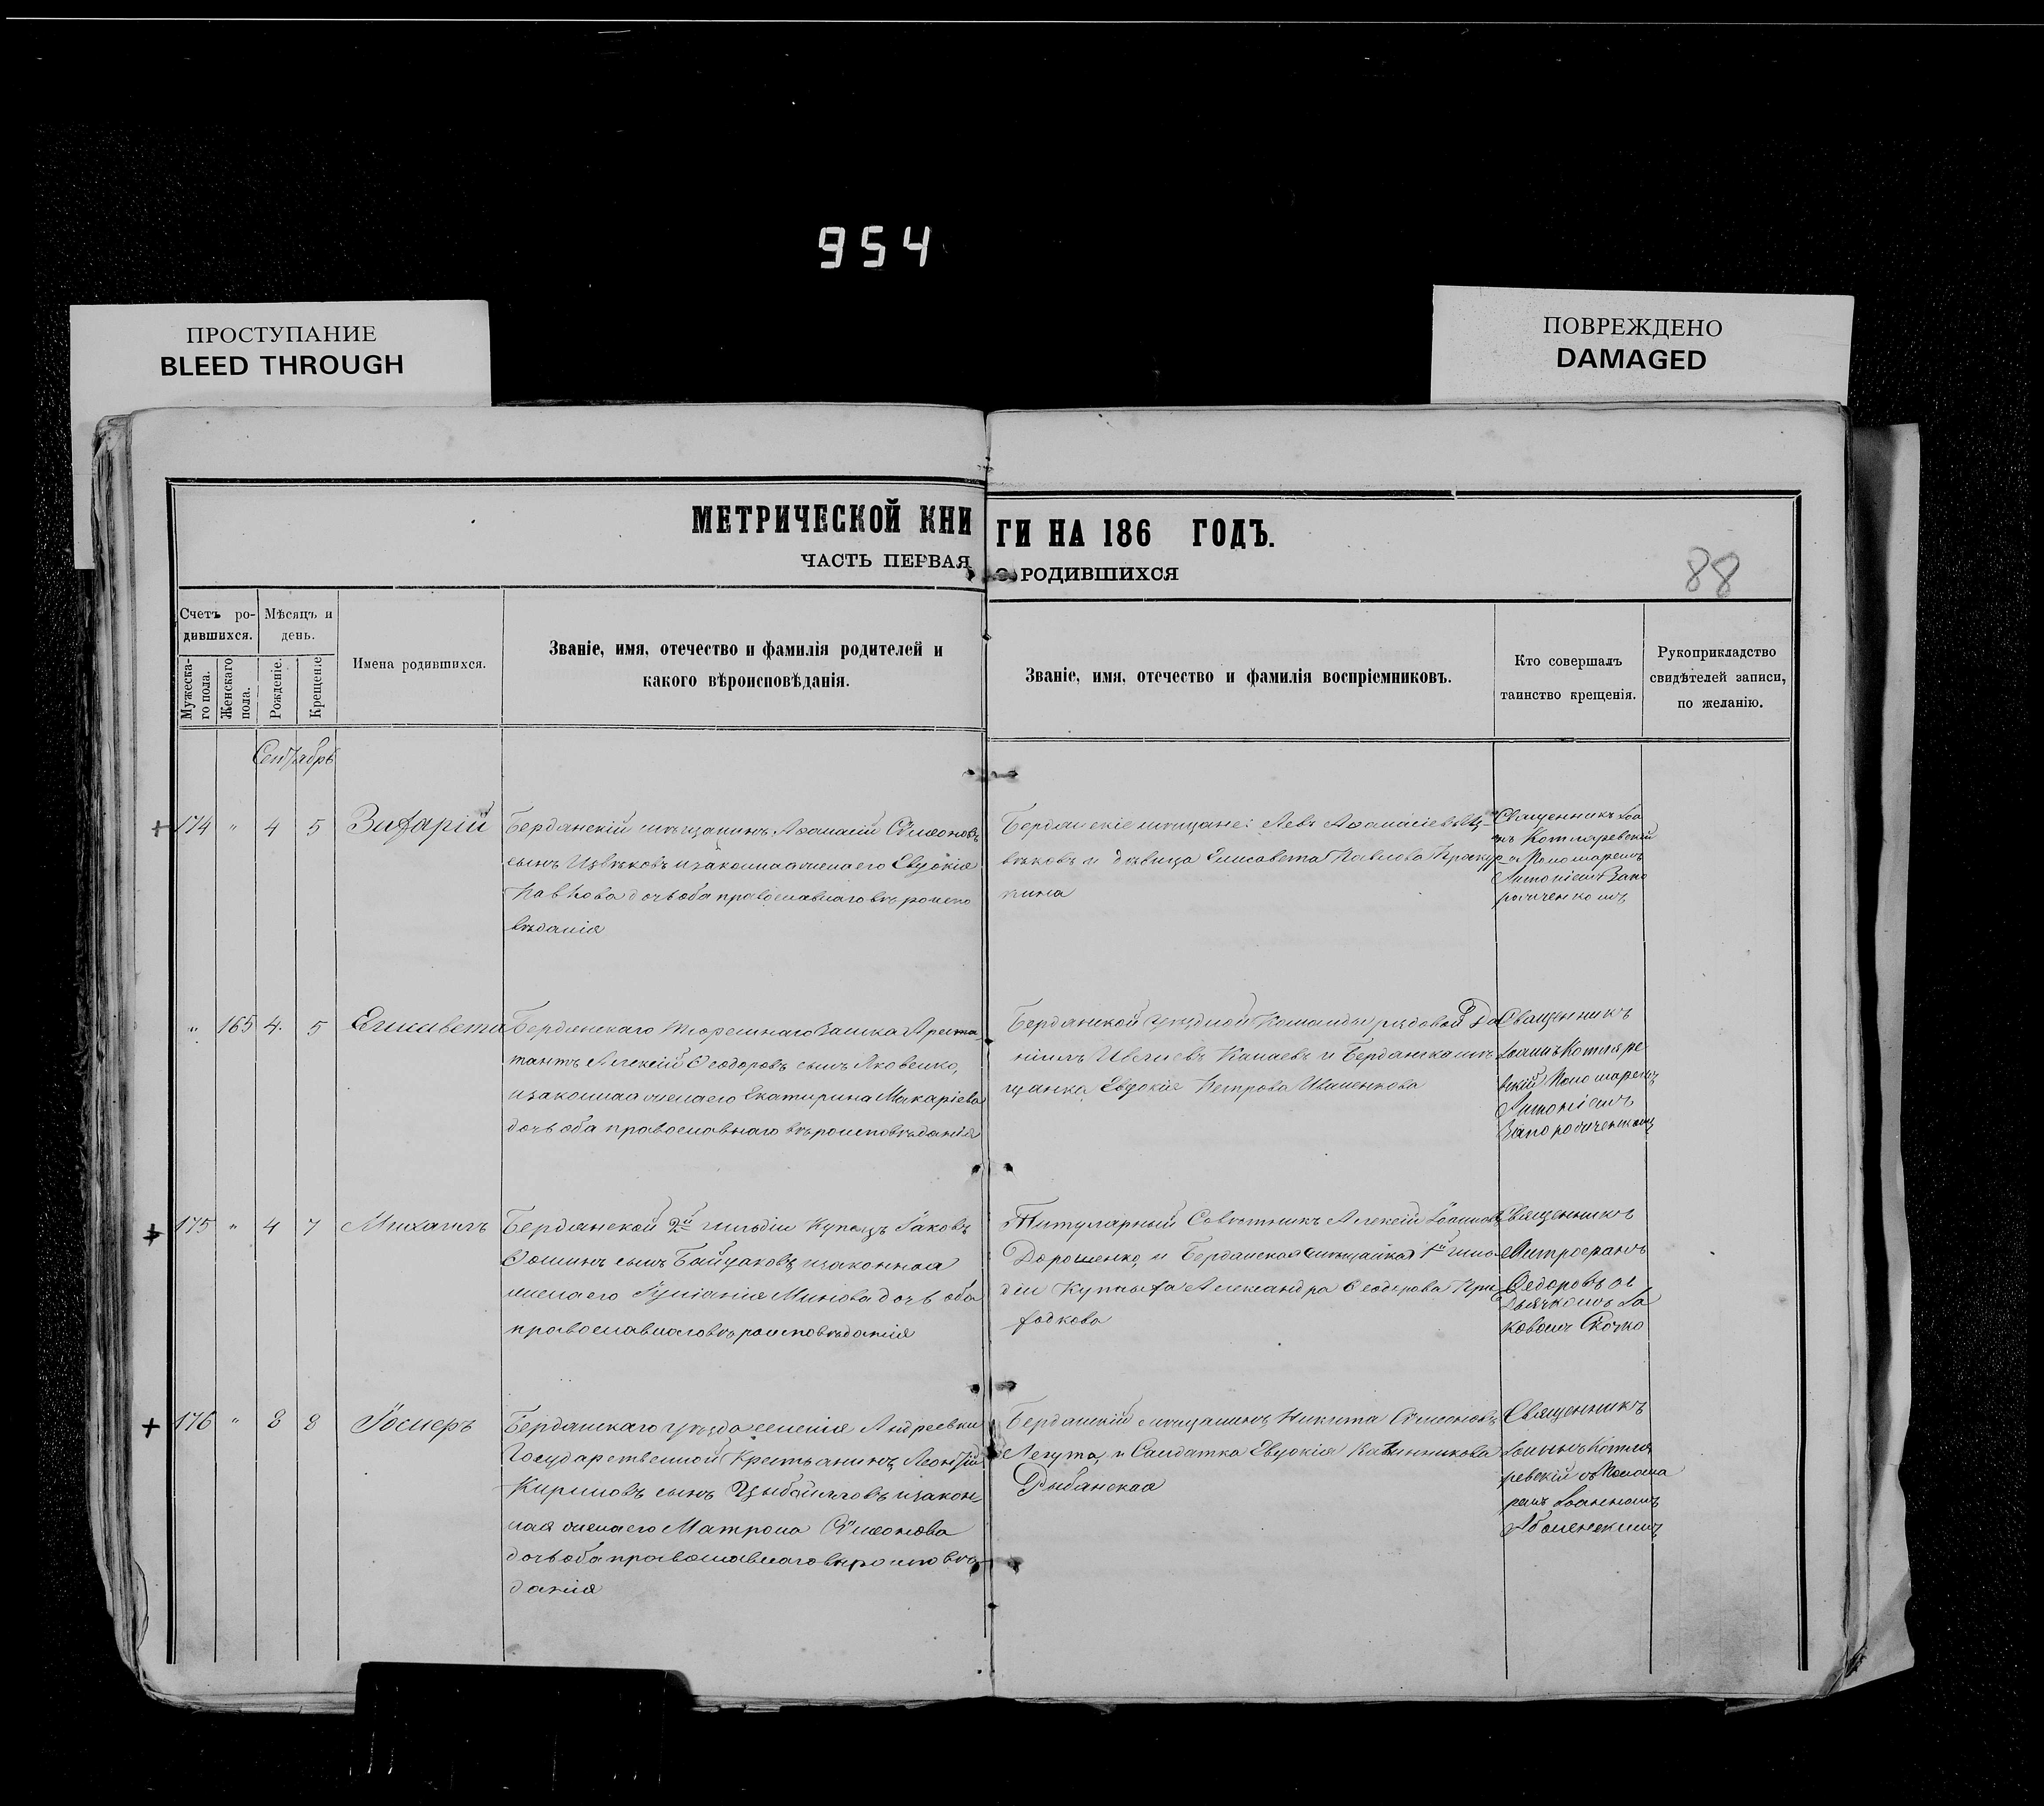 954
ПРОСТУПАНИЕ
BLEED THROUGH
ПОВРЕЖДЕНО
DAMAGED
МЕТРИЧЕСКОЙ КНИ
ГИ НА 186 ГОДЪ.
ЧАСТЬ ПЕРВАЯ
О РОДИВШИХСЯ
88
Счетъ ро-
дившихся.
Мужеска-
го пола.
Женскаго
пола.
Мѣсяцъ и
день.
Рожденіе.
Крещеніе
Имена родившихся.
Званіе, имя, отечество и фамилія родителей и
какого вѣроисповѣданія.
Званіе, имя, отечество и фамилія воспріемниковъ.
Кто совершалъ
таинство крещенія.
Рукоприкладство
свидѣтелей записи,
по желанію.
Сентябрь
174 " 4 5
Бердянскій мѣщанинъ Аѳанасій Сѵмеоновъ
сынъ Цѣвѣковъ и законная жена его Евдокія
Павлова дочь оба православнаго вѣроиспо
вѣданія
Бердянскіе мѣщане: Левъ Аѳанасіевъ
и дѣвица Елисавета Павлова
кина
Священникъ Іоа
нъ Котляревскій
съ Пономаремъ
Антоніемъ Запо
рожченкомъ
" 165 4. 5 Елисавета
Бердянскаго Тюремнаго Замка Ареста
нтъ Алексій Ѳеодоровъ сынъ Яковенко,
и законная жена его Екатирина Макаріева
дочь оба православнаго вѣроисповѣданія
Бердянской уѣздной Команды рядовой Да
ніилъ Канаевъ и Бердянская мѣ
щанка Евдокія Петрова Иваненкова
Священникъ
Іоаннъ Котляре
вскій Пономаремъ
Антоніемъ
Запорожченкомъ
175 " 4 7 Михаилъ
Бердянской 2й гильдіи Купецъ Іаковъ
Ѳоминъ сынъ Байдаковъ и законная
жена его Іуліанія Минова дочь оба
православнаго вѣроисповѣданія
Титулярный Совѣтникъ Алексій Іоанновъ
Дорошенко, и Бердянская 1й гиль
діи Купчиха Александра Ѳеодорова При
ходкова
Священникъ
Митрофанъ
Ѳедоровъ съ
Дьячкомъ Іа
ковомъ
176 " 8 8 Іосифъ
Бердянскаго уѣзда селенія Андреевки
Государственной Крестьянинъ Леонтій
Кириловъ сынъ и закон
ная жена его Матрона Сѵмеонова
дочь оба православнаго вѣроисповѣ
данія
Бердянскій мѣщанинъ Никита Сѵмеоновъ
Легута, и Солдатка Евдокія
Рыбанская
Священникъ
Іоаннъ Котля
ревскій съ Понома
ремъ Іоанномъ